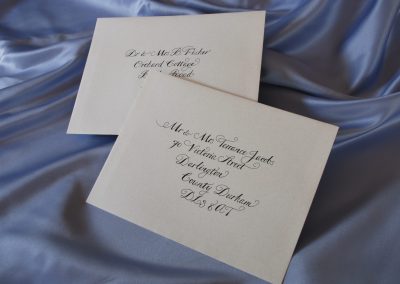 Dr & Mrs P Fisher
Orchard Cottage
Road
Mr & Mrs Terrance Jacobs
90 Victoria Street
Darlington
County Durham
DL3 6AT